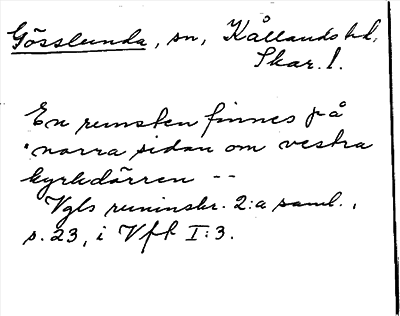 Gösslunda, sn, Kållands hd,
Skar. l.
En runsten finnes på
norra sidan om vestra
kyrkdörren --
Vgls runinskr. 2:a saml.,
s. 23, i Vfk I:3.